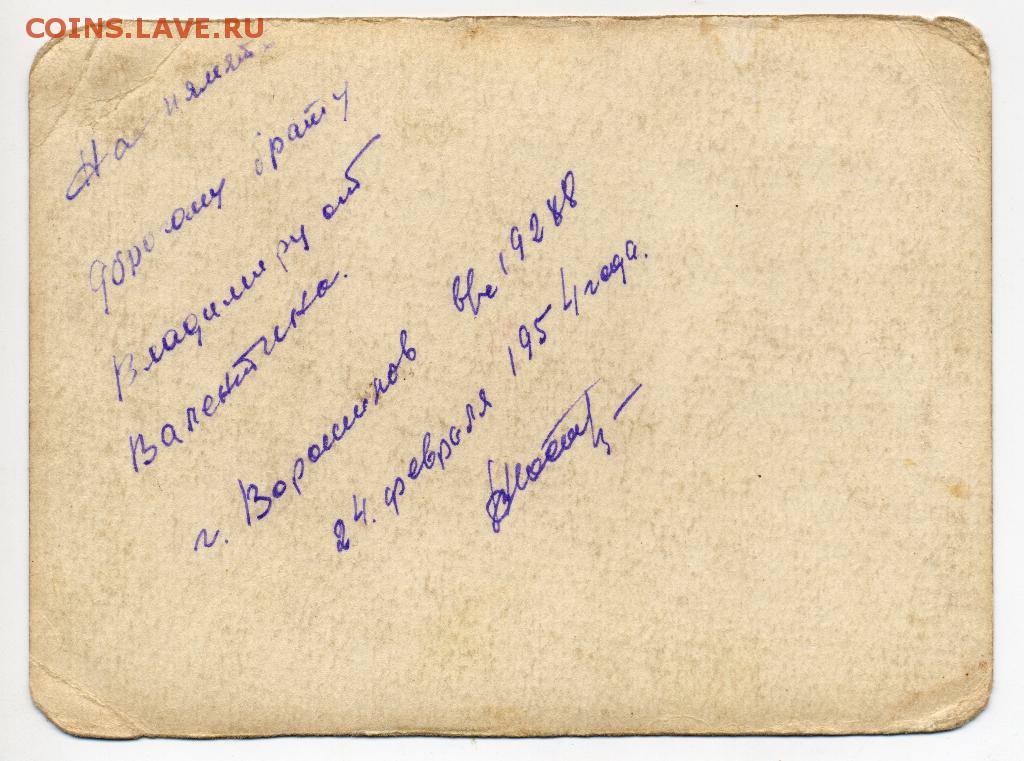 COINS.LAVE.RU
На памят
дорогому брату
Владимиру от
Валентина.
г. Ворошилов в/ч 19288
24. февраля 1954 года.